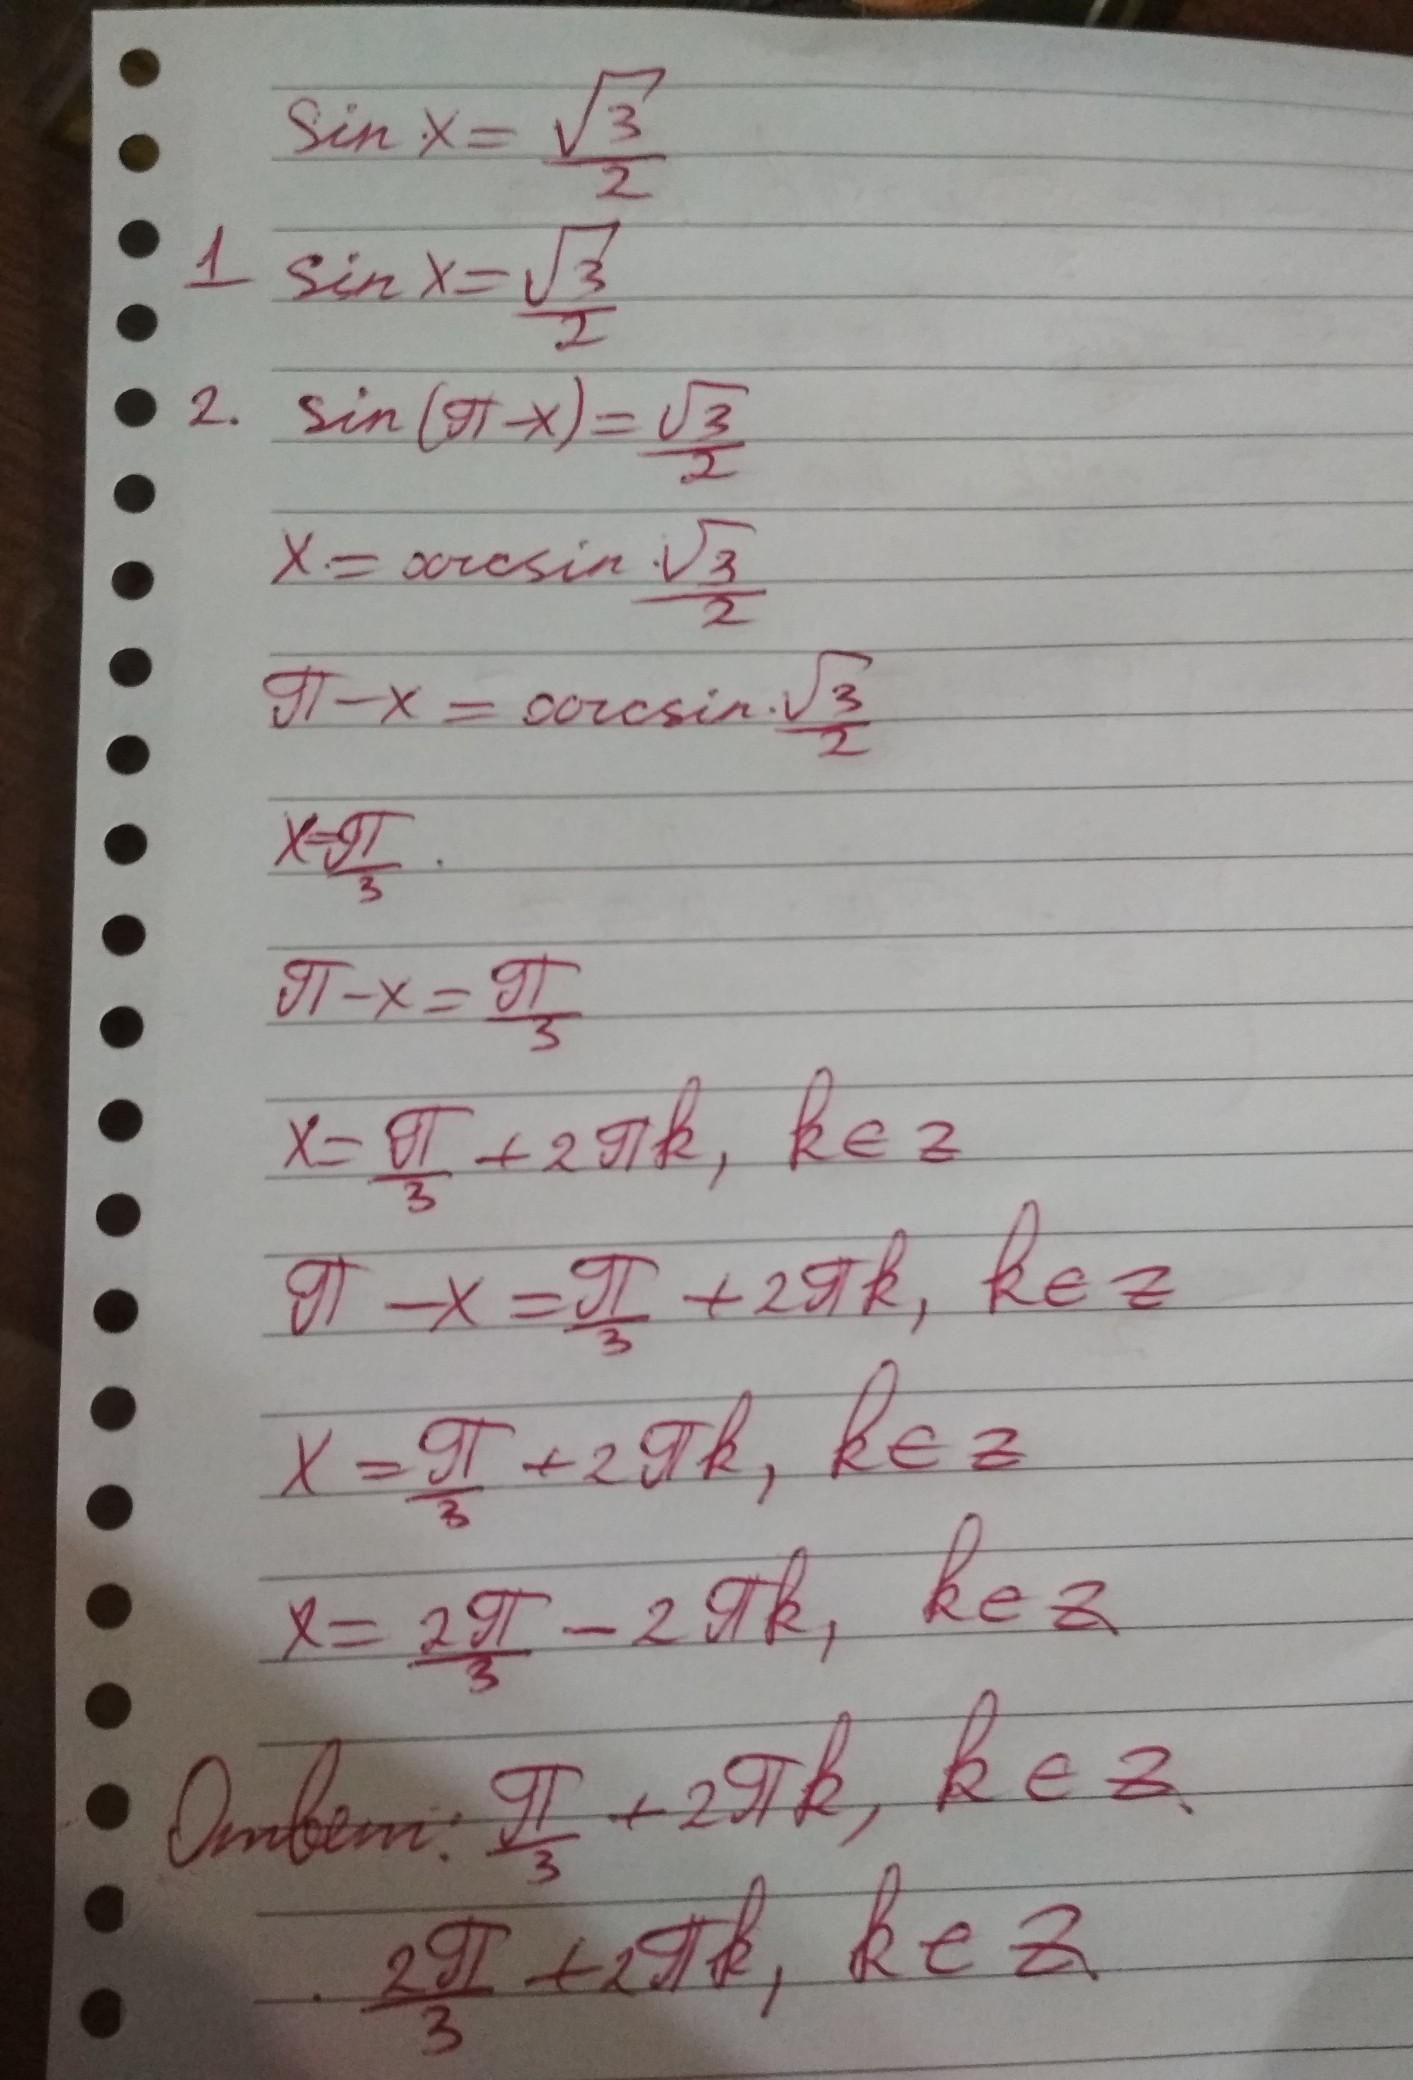 sin x = √3/2
1 sin x = √3/2
2. sin(π-x) = √3/2
x = arcsin √3/2
π-x = arcsin √3/2
x = π/3
π-x = π/3
x = π/3 + 2πk, k∈z
π-x = π/3 + 2πk, k∈z
x = π/3 + 2πk, k∈z
x = 2π/3 - 2πk, k∈z
Ответ: π/3 + 2πk, k∈z
2π/3 + 2πk, k∈z